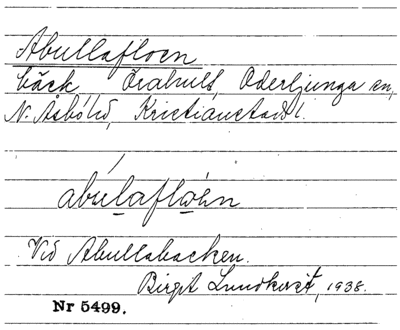 Abullafloen
bäck Örahult, Oderljunga sn,
N. Åsbo hd, Kristianstads l.
abulafloən
Vid Abullabacken.
Birgit Lundkvist, 1938.
Nr 5499.